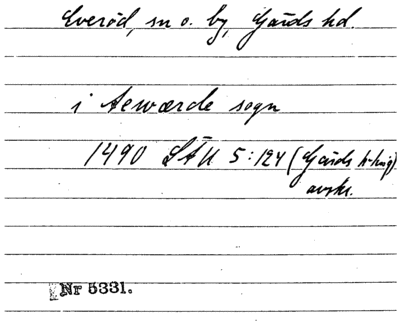 Everöd, sn o. by, Gärds hd.
i Aewærde sogn
1490 LÄU 5:124 (Gärds h-ting)
avskr.
Nr 5331.